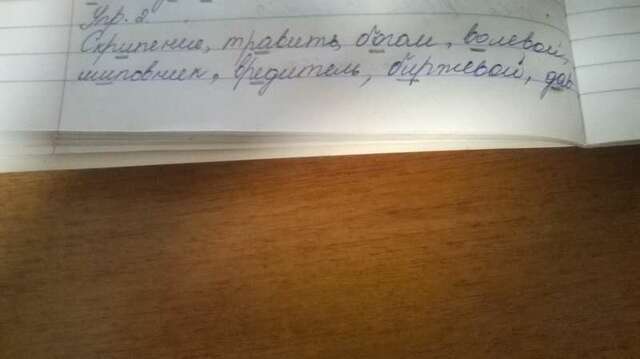 Упр. 2
Скрипение, травить, богом, волевой,
шиповник, вредитель, биржевой,